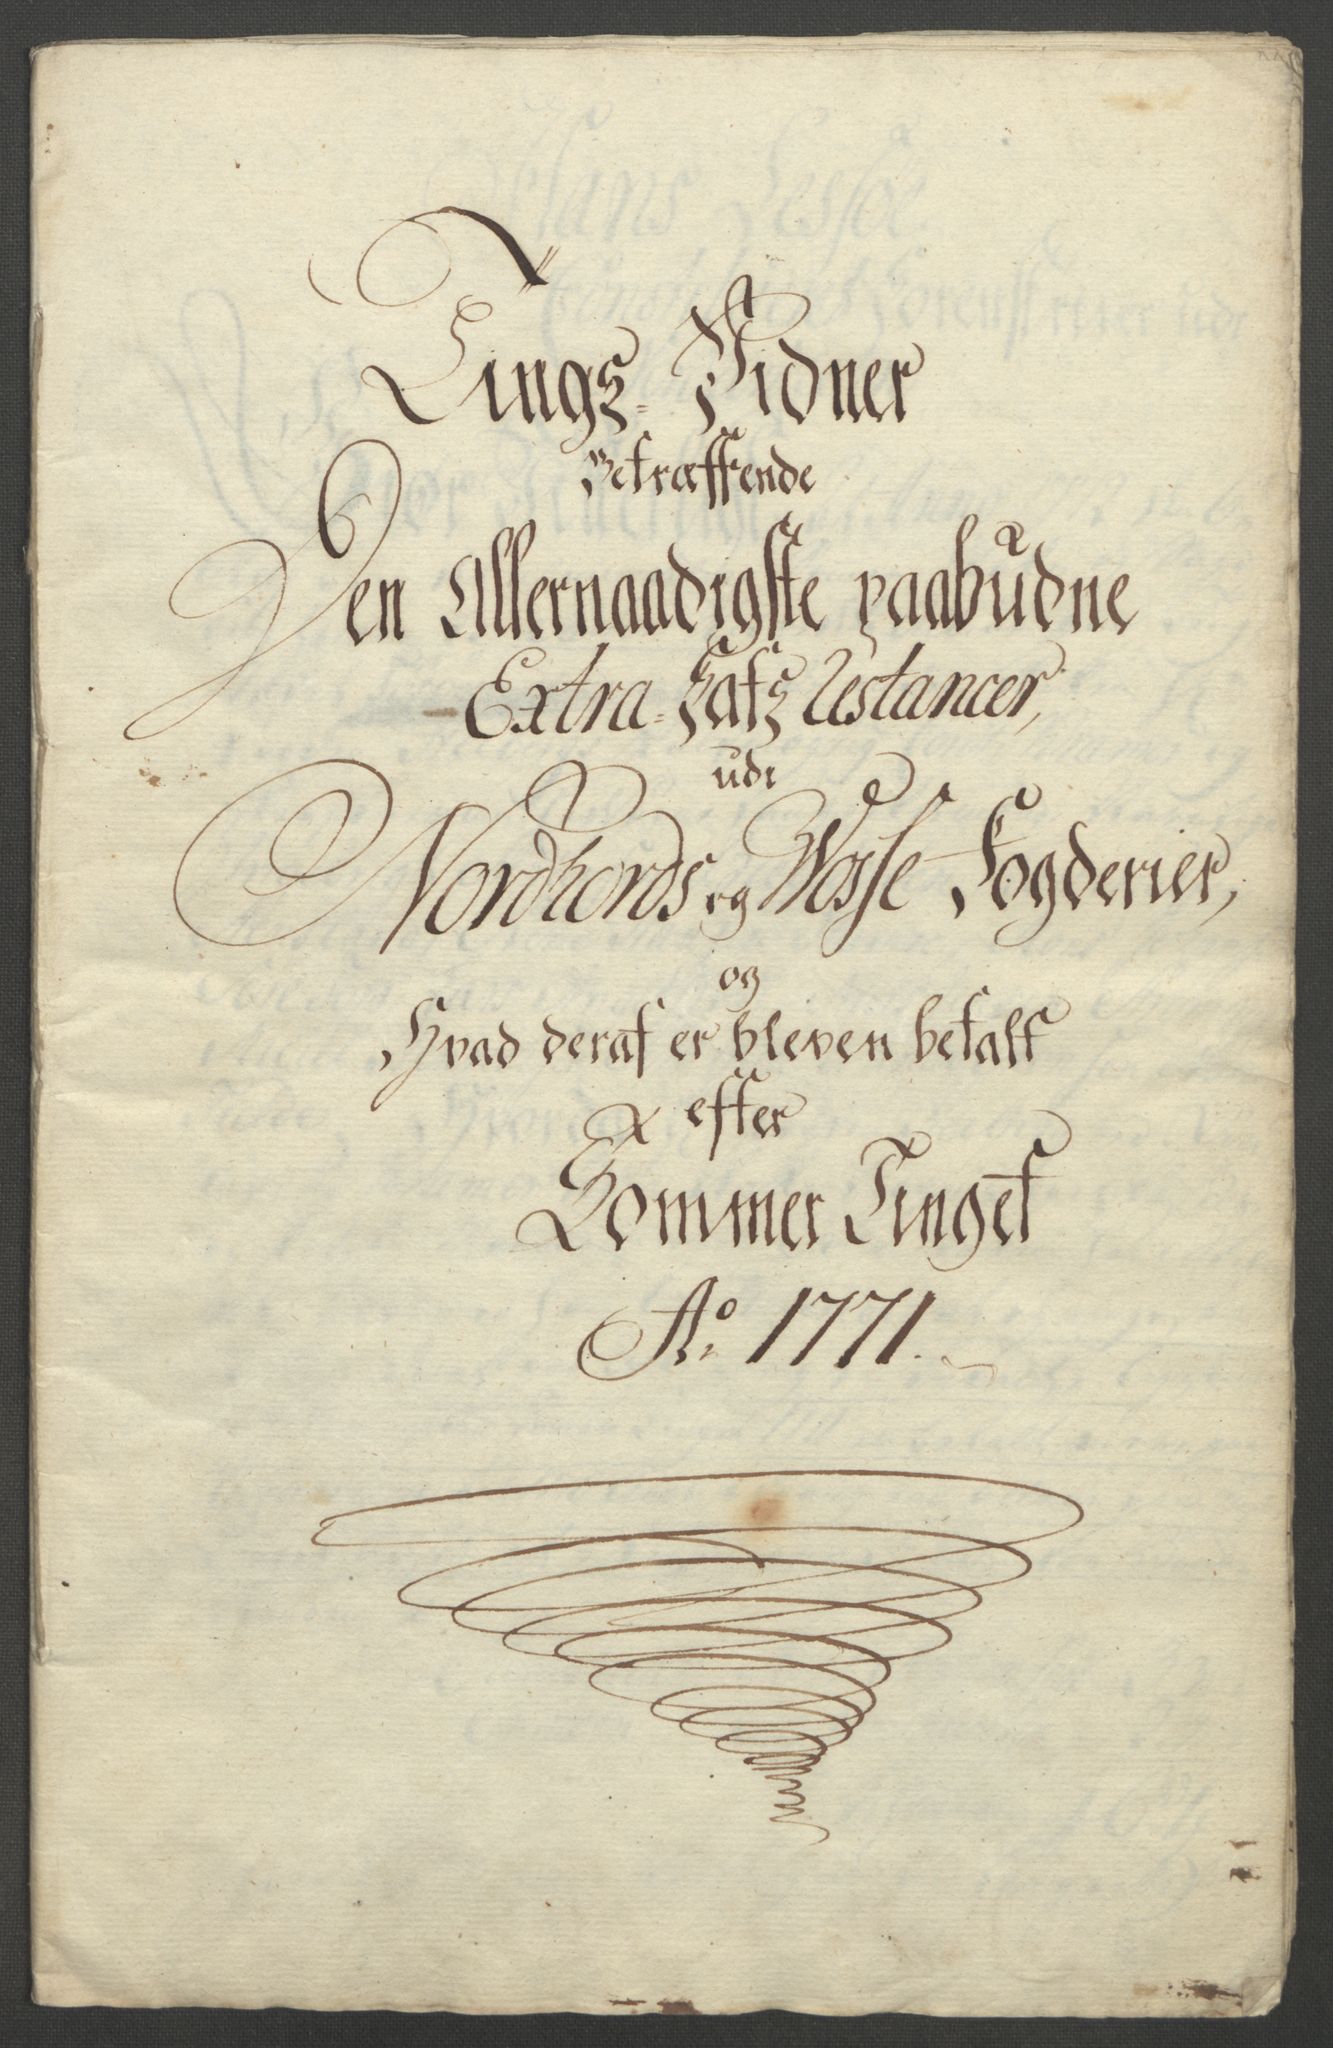 Tings-Vidner
Betræffende
Den Allernaadigste paabudne
Extra-Skatz Restancer,
udi
Nordhords og Wosse Fogderier,
og
Hvad deraf er bleven betalt
efter
Sommer Tinget
Aº. 1771.